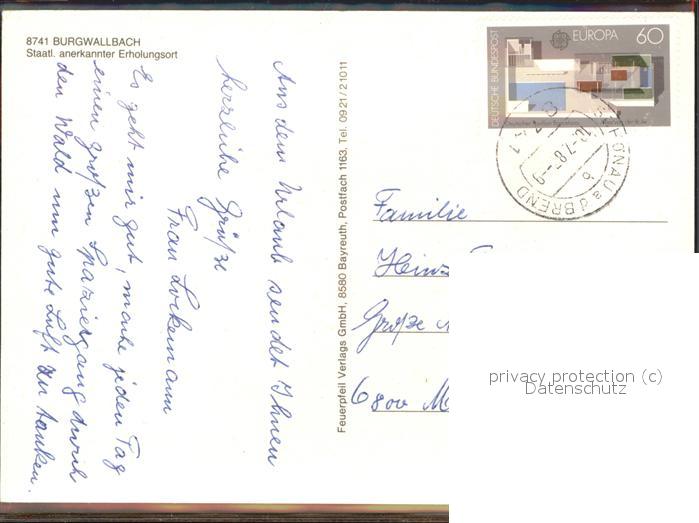 8741 BURGWALLBACH
Staatl. anerkannter Erholungsort
Aus dem Urlaub sendet Ihnen
herzliche Grüße
Frau Lockemann
Es geht mir gut, mache jeden Tag
einen großen Spaziergang durch
den Wald um gute Luft zu tanken.
Feuerpfeil Verlags GmbH, 8580 Bayreuth, Postfach 1163, Tel. 09 21 / 2 10 11
DEUTSCHE BUNDESPOST
EUROPA 60
SCHÖNAU a d BREND
Familie
Heinz
Große
6800
privacy protection (c)
Datenschutz